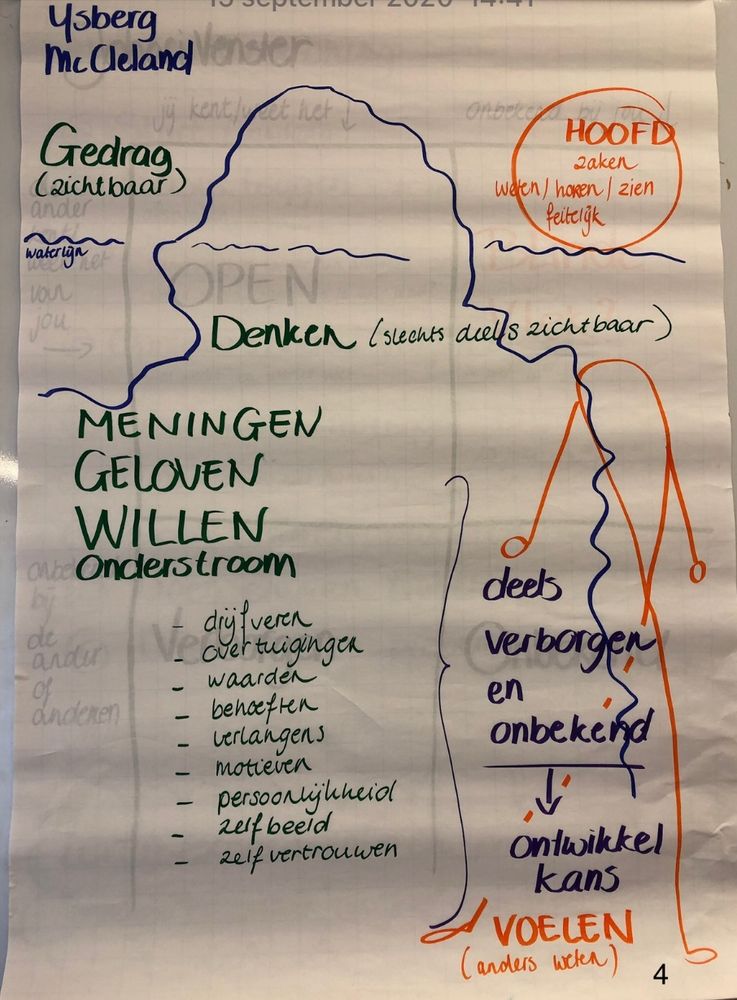 13 september 2020 14:41
Ysberg
McCleland
Gedrag
(zichtbaar)
HOOFD
zaken
weten/horen/zien
feitelijk
waterlijn
Denken (slechts deels zichtbaar)
MENINGEN
GELOVEN
WILLEN
Onderstroom
- drijfveren
- overtuigingen
- waarden
- behoeften
- verlangens
- motieven
- persoonlijkheid
- zelfbeeld
- zelfvertrouwen
deels
verborgen
en
onbekend
ontwikkel
kans
VOELEN
(anders weten)
4
Venster
jij kent/weet het ↓
onbekend bij jou
ander
weet het
van
jou
→
OPEN
bij
de
ander
of
anderen